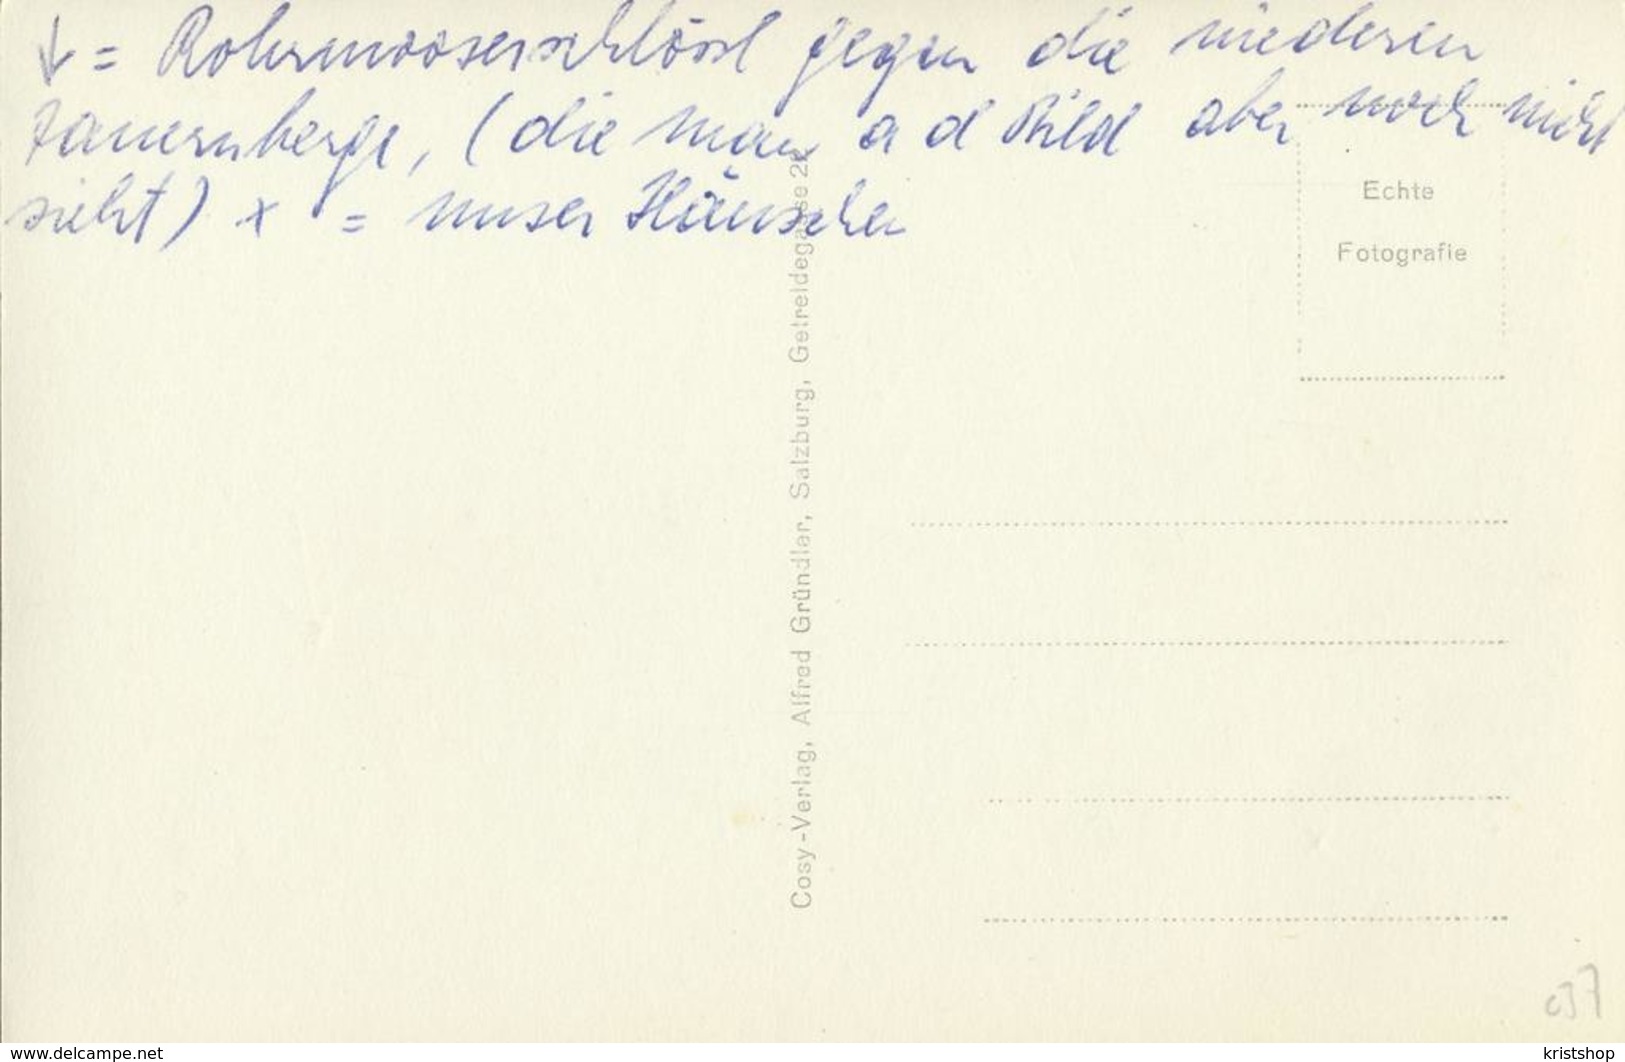 ↓ = Rohrmooserschlössl gegen die niederen
Tauernberge, (die man a d Bild aber noch nicht
sieht) x = unser Häuschen
Echte
Fotografie
Cosy-Verlag, Alfred Gründler, Salzburg, Getreidegasse 22
www.delcampe.net
kristshop